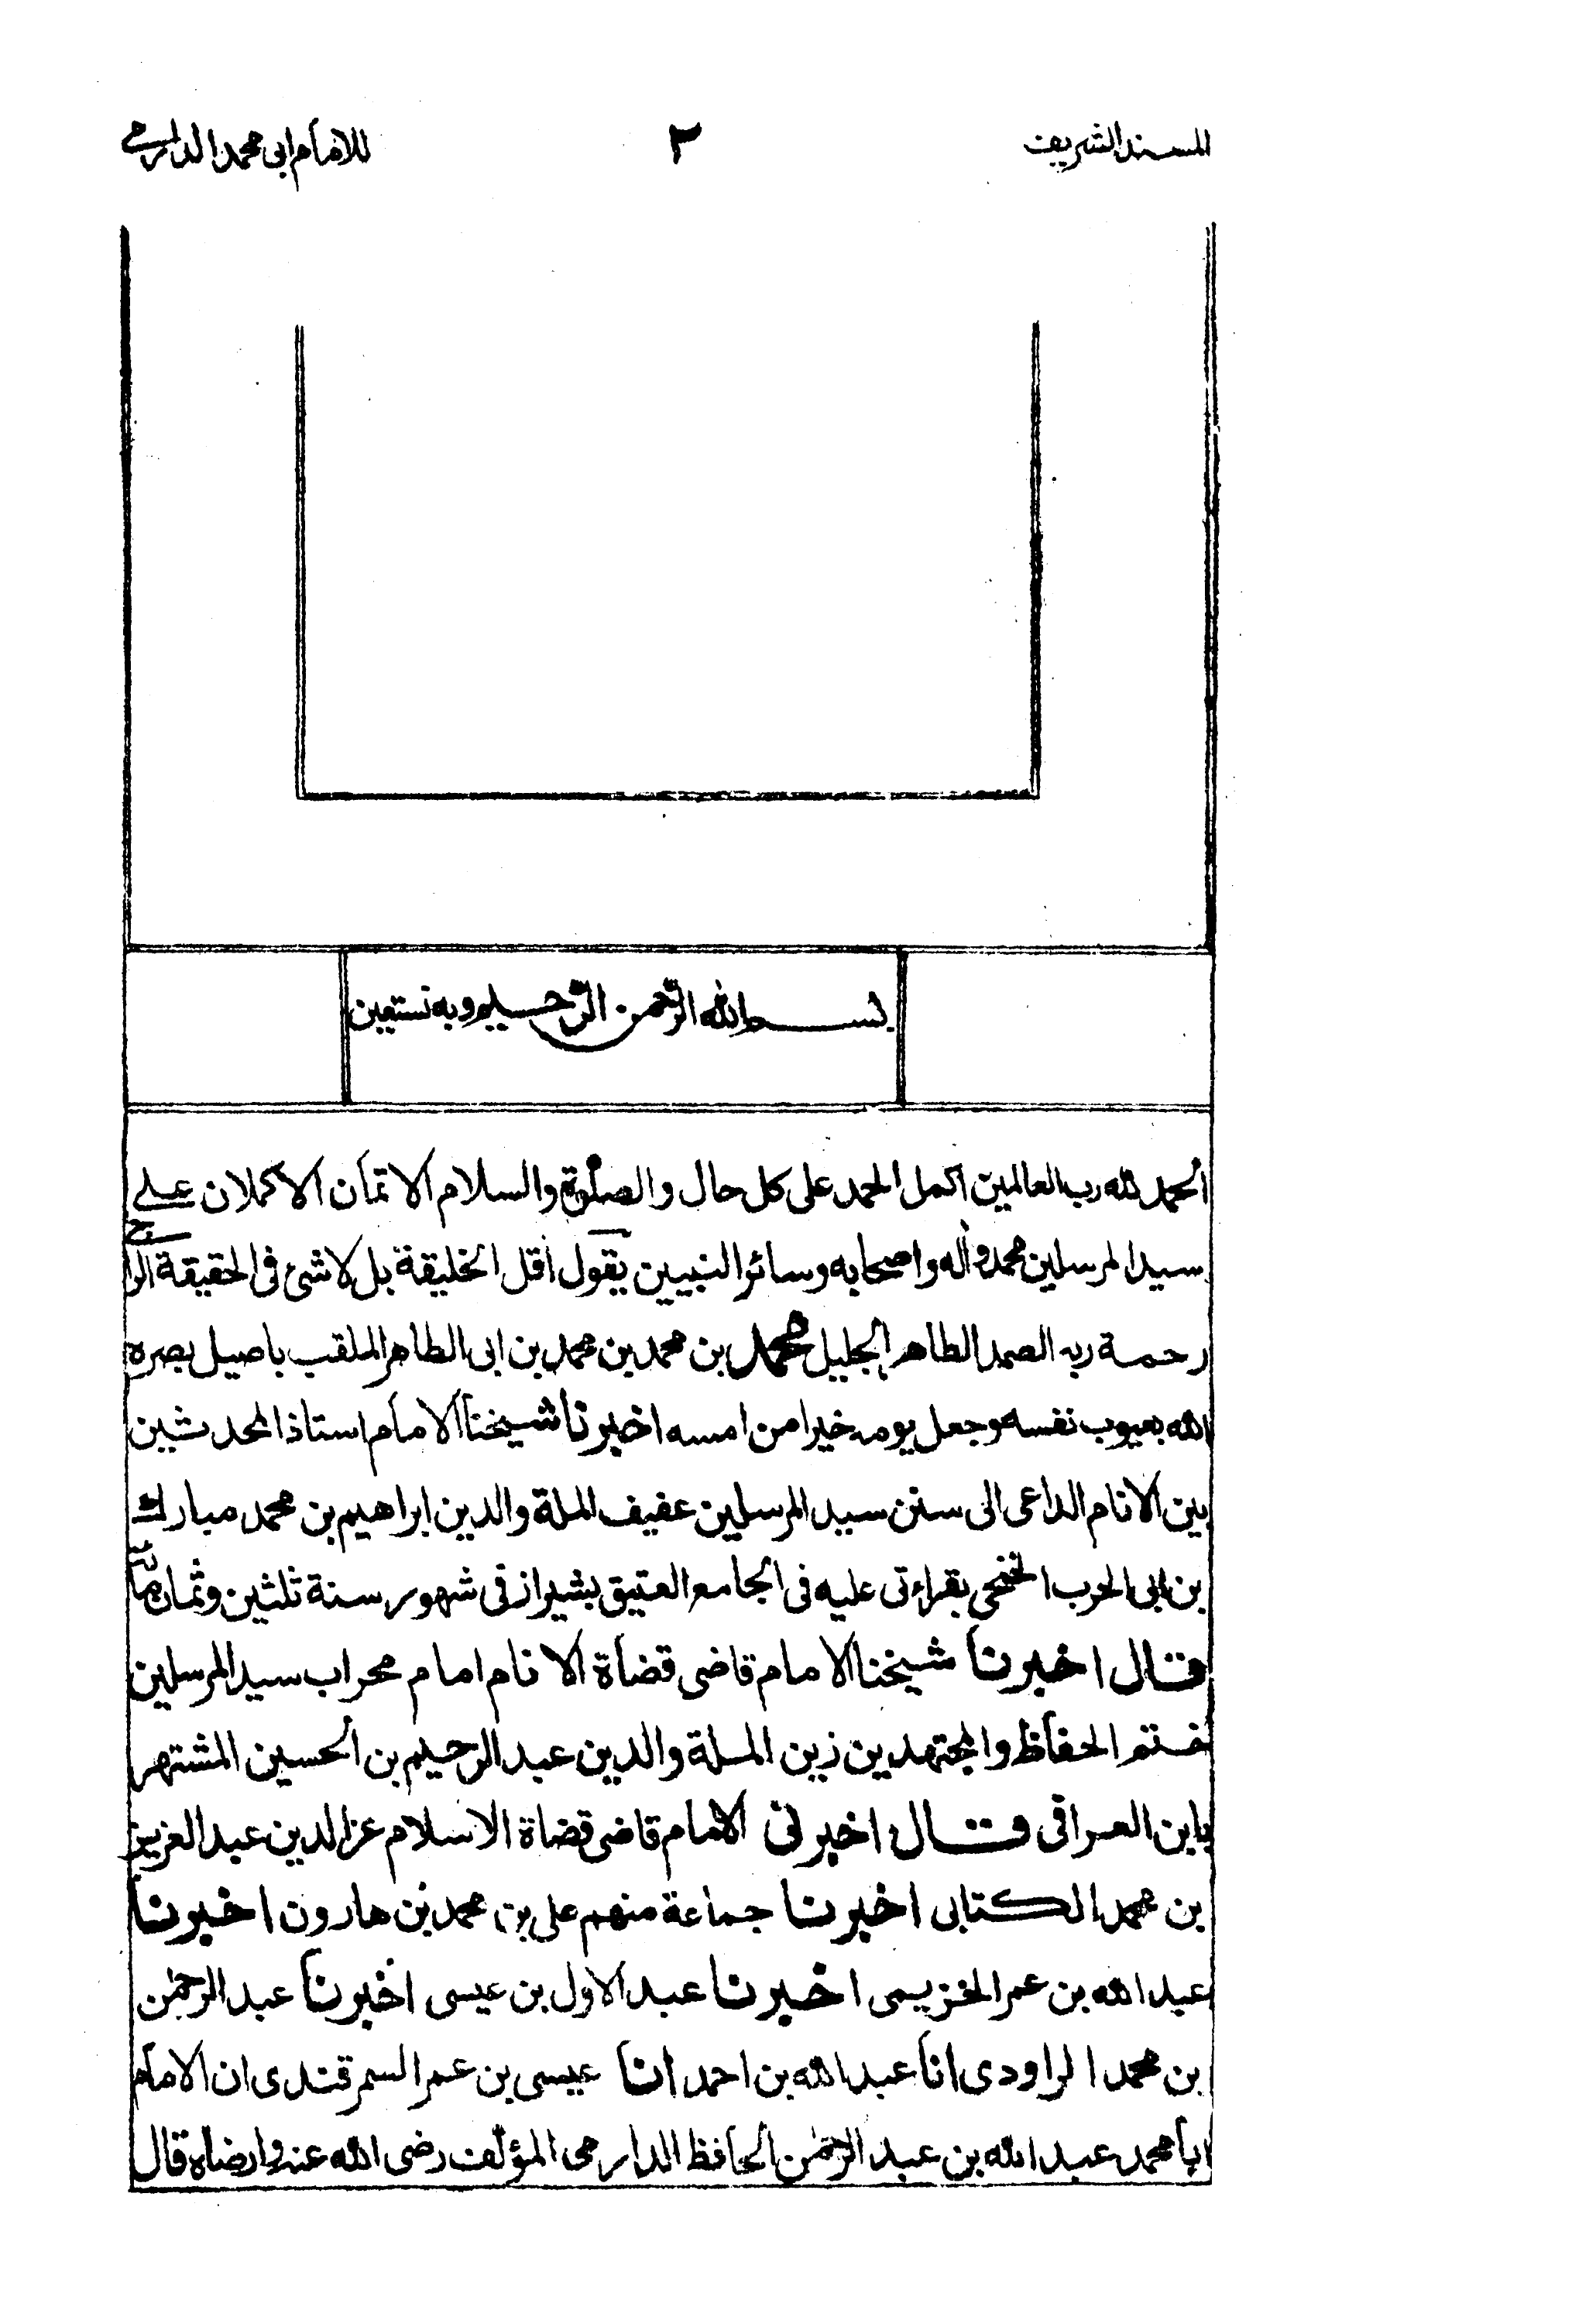 المسند الشريف
٢
للامام ابی محمد الدارمی
بسم الله الرحمن الرحيم وبه نستعين
الحمد لله رب العالمين اكمل الحمد علی كل حال والصلوة والسلام الاتمان الاكملان علی
سيد المرسلين محمد واله واصحابه وسائر النبيين يقول اقل الخليقة بل لا شئ فی الحقيقة الراجی
رحمة ربه الصمد الطاهر الجليل محمد بن محمد بن محمد بن ابی الطاهر الملقب باصيل بصره
الله بعيوب نفسه وجعل يومه خيرا من امسه اخبرنا شيخنا الامام استاذ المحدثين
بين الانام الداعی الی سنن سيد المرسلين عفيف الملة والدين ابراهيم بن محمد مبارك
بن ابی الحرب الخنجی بقراءتی عليه فی الجامع العتيق بشيراز فی شهور سنة ثلثين وثمان مائة
قال اخبرنا شيخنا الامام قاضی قضاة الانام امام محراب سيد المرسلين
الحفاظ والمجتهدين زين الملة والدين عبد الرحيم بن الحسين المشتهر
بابن العراقی قال اخبرنی الامام قاضی قضاة الاسلام عز الدين عبد العزيز
بن محمد الكتابی اخبرنا جماعة منهم علی بن محمد بن هارون اخبرنا
عبد الله بن عمر الخزيمی اخبرنا عبد الاول بن عيسی اخبرنا عبد الرحمن
بن محمد الراودی انا عبد الله بن احمد انا عيسی بن عمر السمرقندی ان الامام
ابا محمد عبد الله بن عبد الرحمن الحافظ الدارمی المؤلف رضی الله عنه وارضاه قال